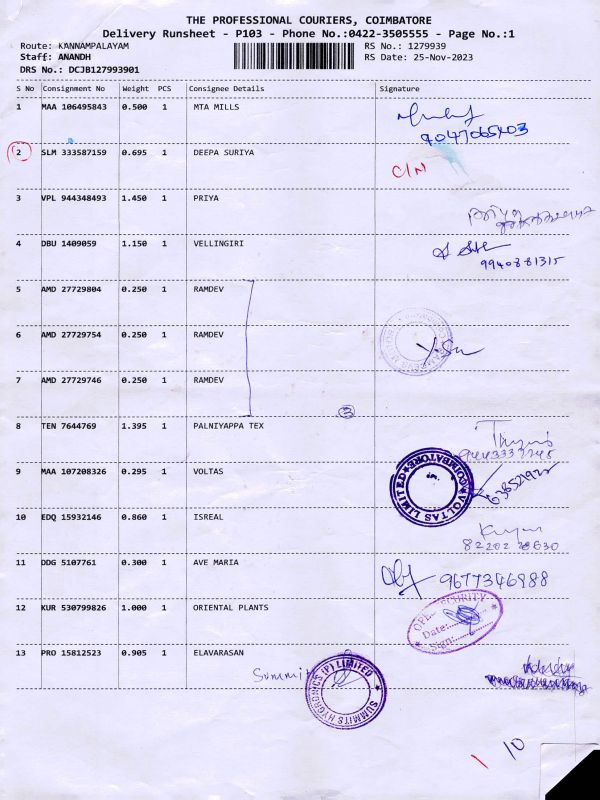 THE PROFESSIONAL COURIERS, COIMBATORE
Delivery Runsheet - P103 - Phone No.:0422-3505555 - Page No.:1
Route: KANNAMPALAYAM RS No.: 1279939
Staff: ANANDH RS Date: 25-Nov-2023
DRS No.: DCJB127993901
S No Consignment No Weight PCS Consignee Details Signature
1 MAA 106495843 0.500 1 MTA MILLS
9047065403
2 SLM 333587159 0.695 1 DEEPA SURIYA C/N
3 VPL 944348493 1.450 1 PRIYA
4 DBU 1409059 1.150 1 VELLINGIRI
9940881315
5 AMD 27729804 0.250 1 RAMDEV
6 AMD 27729754 0.250 1 RAMDEV
7 AMD 27729746 0.250 1 RAMDEV
3
8 TEN 7644769 1.395 1 PALNIYAPPA TEX
9 MAA 107208326 0.295 1 VOLTAS
VOLTAS LIMITED COIMBATORE
10 EDQ 15932146 0.860 1 ISREAL
11 DDG 5107761 0.300 1 AVE MARIA
9677346988
12 KUR 530799826 1.000 1 ORIENTAL PLANTS
SECURITY
Date:
Sign:
13 PRO 15812523 0.905 1 ELAVARASAN
SUMMITS HYGRONICS (P) LIMITED
10